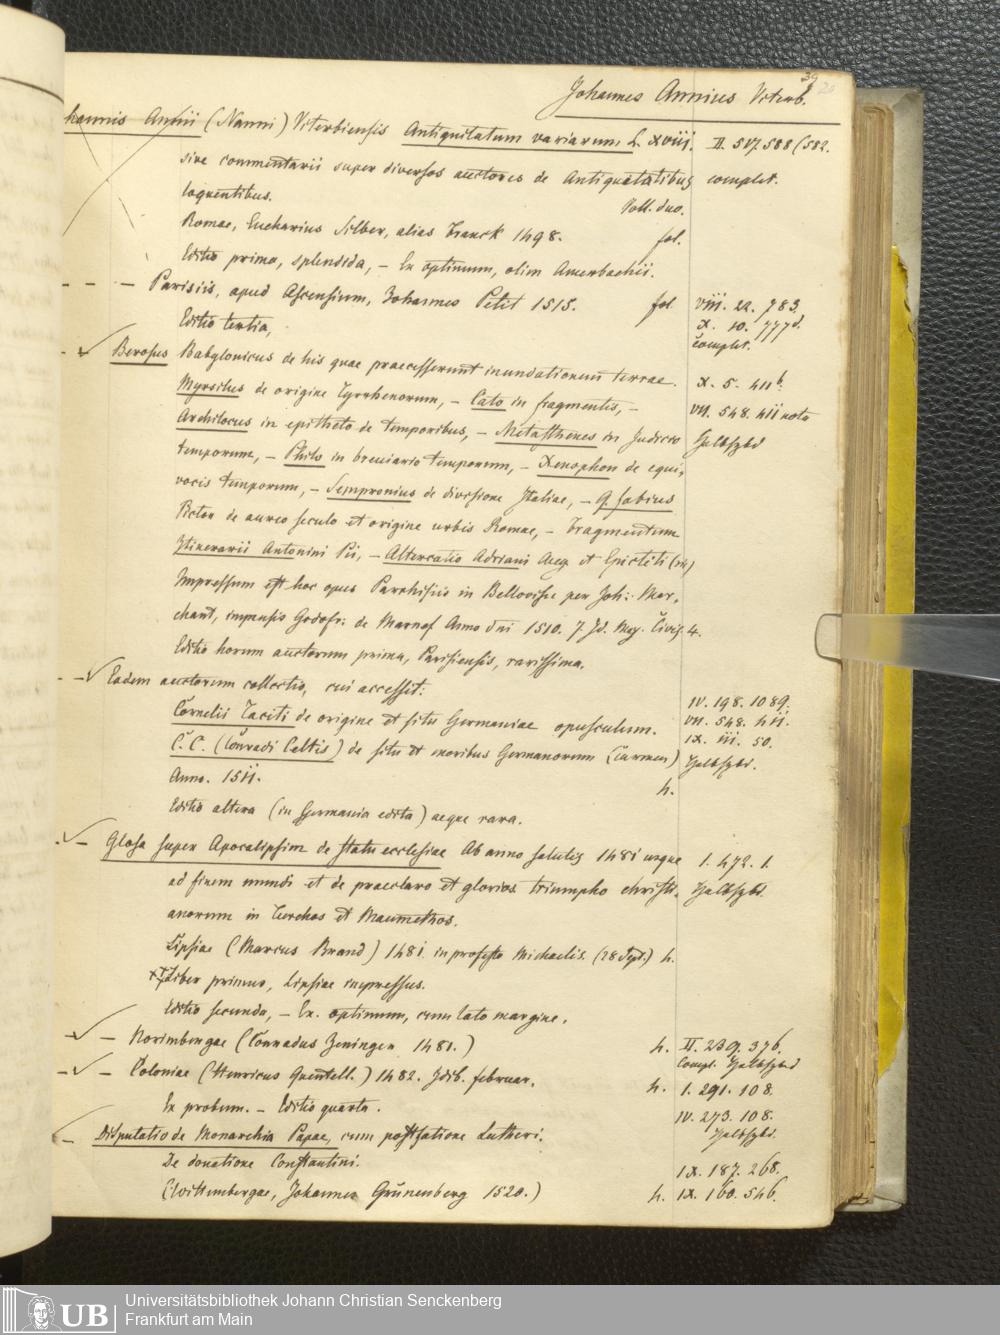 39
Johannes Annius Viterb.
hannis Annii (Nanni) Viterbiensis Antiquitatum variarum L. xviii. II. 517. 588 (582.
sive commentarii super diversos auctores de Antiquitatibus complet.
loquentibus. Voll. duo.
Romae, Eucharius Silber, alias Franck 1498. fol.
Editio prima, splendida, – Ex. optimum, olim Amerbachii.
– – – Parisiis, apud Ascensium, Johannes Petit 1515. fol. viii. 22. 783.
Editio tertia, x. 10. 777d.
complet.
Berosus Babylonicus de his quae praecesserunt inundationem terrae. x. 5. 411b.
Myrsilus de origine Tyrrhenorum, – Cato in fragmentis, – vii. 548. 411 nota
Archilocus in epitheto de temporibus, – Metasthenes in Judicio Halbfzbd
temporum, – Philo in breviario temporum, – Xenophon de equi-
vocis temporum, – Sempronius de divisione Italiae, – Q. Fabius
Pictor de aureo seculo et origine urbis Romae, – Fragmentum
Itinerarii Antonini Pii, – Altercatio Adriani Aug. et Epicteti
Impressum est hoc opus Parrhisiis in Bellovisu per Joh: Mar-
chant, impensis Godofr: de Marnef Anno dni 1510. 7 Id. May. 4.
Editio horum auctorum prima, Parisiensis, rarissima.
– – Eadem auctorum collectio, cui accessit: iv. 198. 1089.
Cornelii Taciti de origine et situ Germaniae opusculum. vii. 548. 411.
C. C. (Conradi Celtis) de situ et moribus Germanorum (Carmen) ix. iii. 50.
Anno. 1511. 4. Halbfzbd.
Editio altera (in Germania edita) aeque rara.
– Glosa super Apocalipsim de statu ecclesiae Ab anno salutis 1481 usque 1. 472. 1.
ad finem mundi et de praeclaro et glorios. triumpho christi- Halbfzbd.
anorum in Turchos et Maumethos.
Lipsiae (Marcus Brand) 1481. in profesto Michaelis. (28 Sept.) 4.
Liber primus, Lipsiae impressus.
Editio secunda, – Ex. optimum, cum lato margine.
– Norimbergae (Conradus Zeninger 1481.) 4. II. 239. 376.
Compl. Halbfzbd
– Coloniae (Henricus Quentell.) 1482. Idib. februar. 4. 1. 291. 108.
Ex. probum. – Editio quarta. iv. 273. 108.
– Disputatio de Monarchia Papae, cum postfatione Lutheri. Halbfzbd.
De donatione Constantini. ix. 187. 268.
(Wittembergae, Johannes Grünenberg 1520.) 4. ix. 160. 546.
UB Universitätsbibliothek Johann Christian Senckenberg
Frankfurt am Main